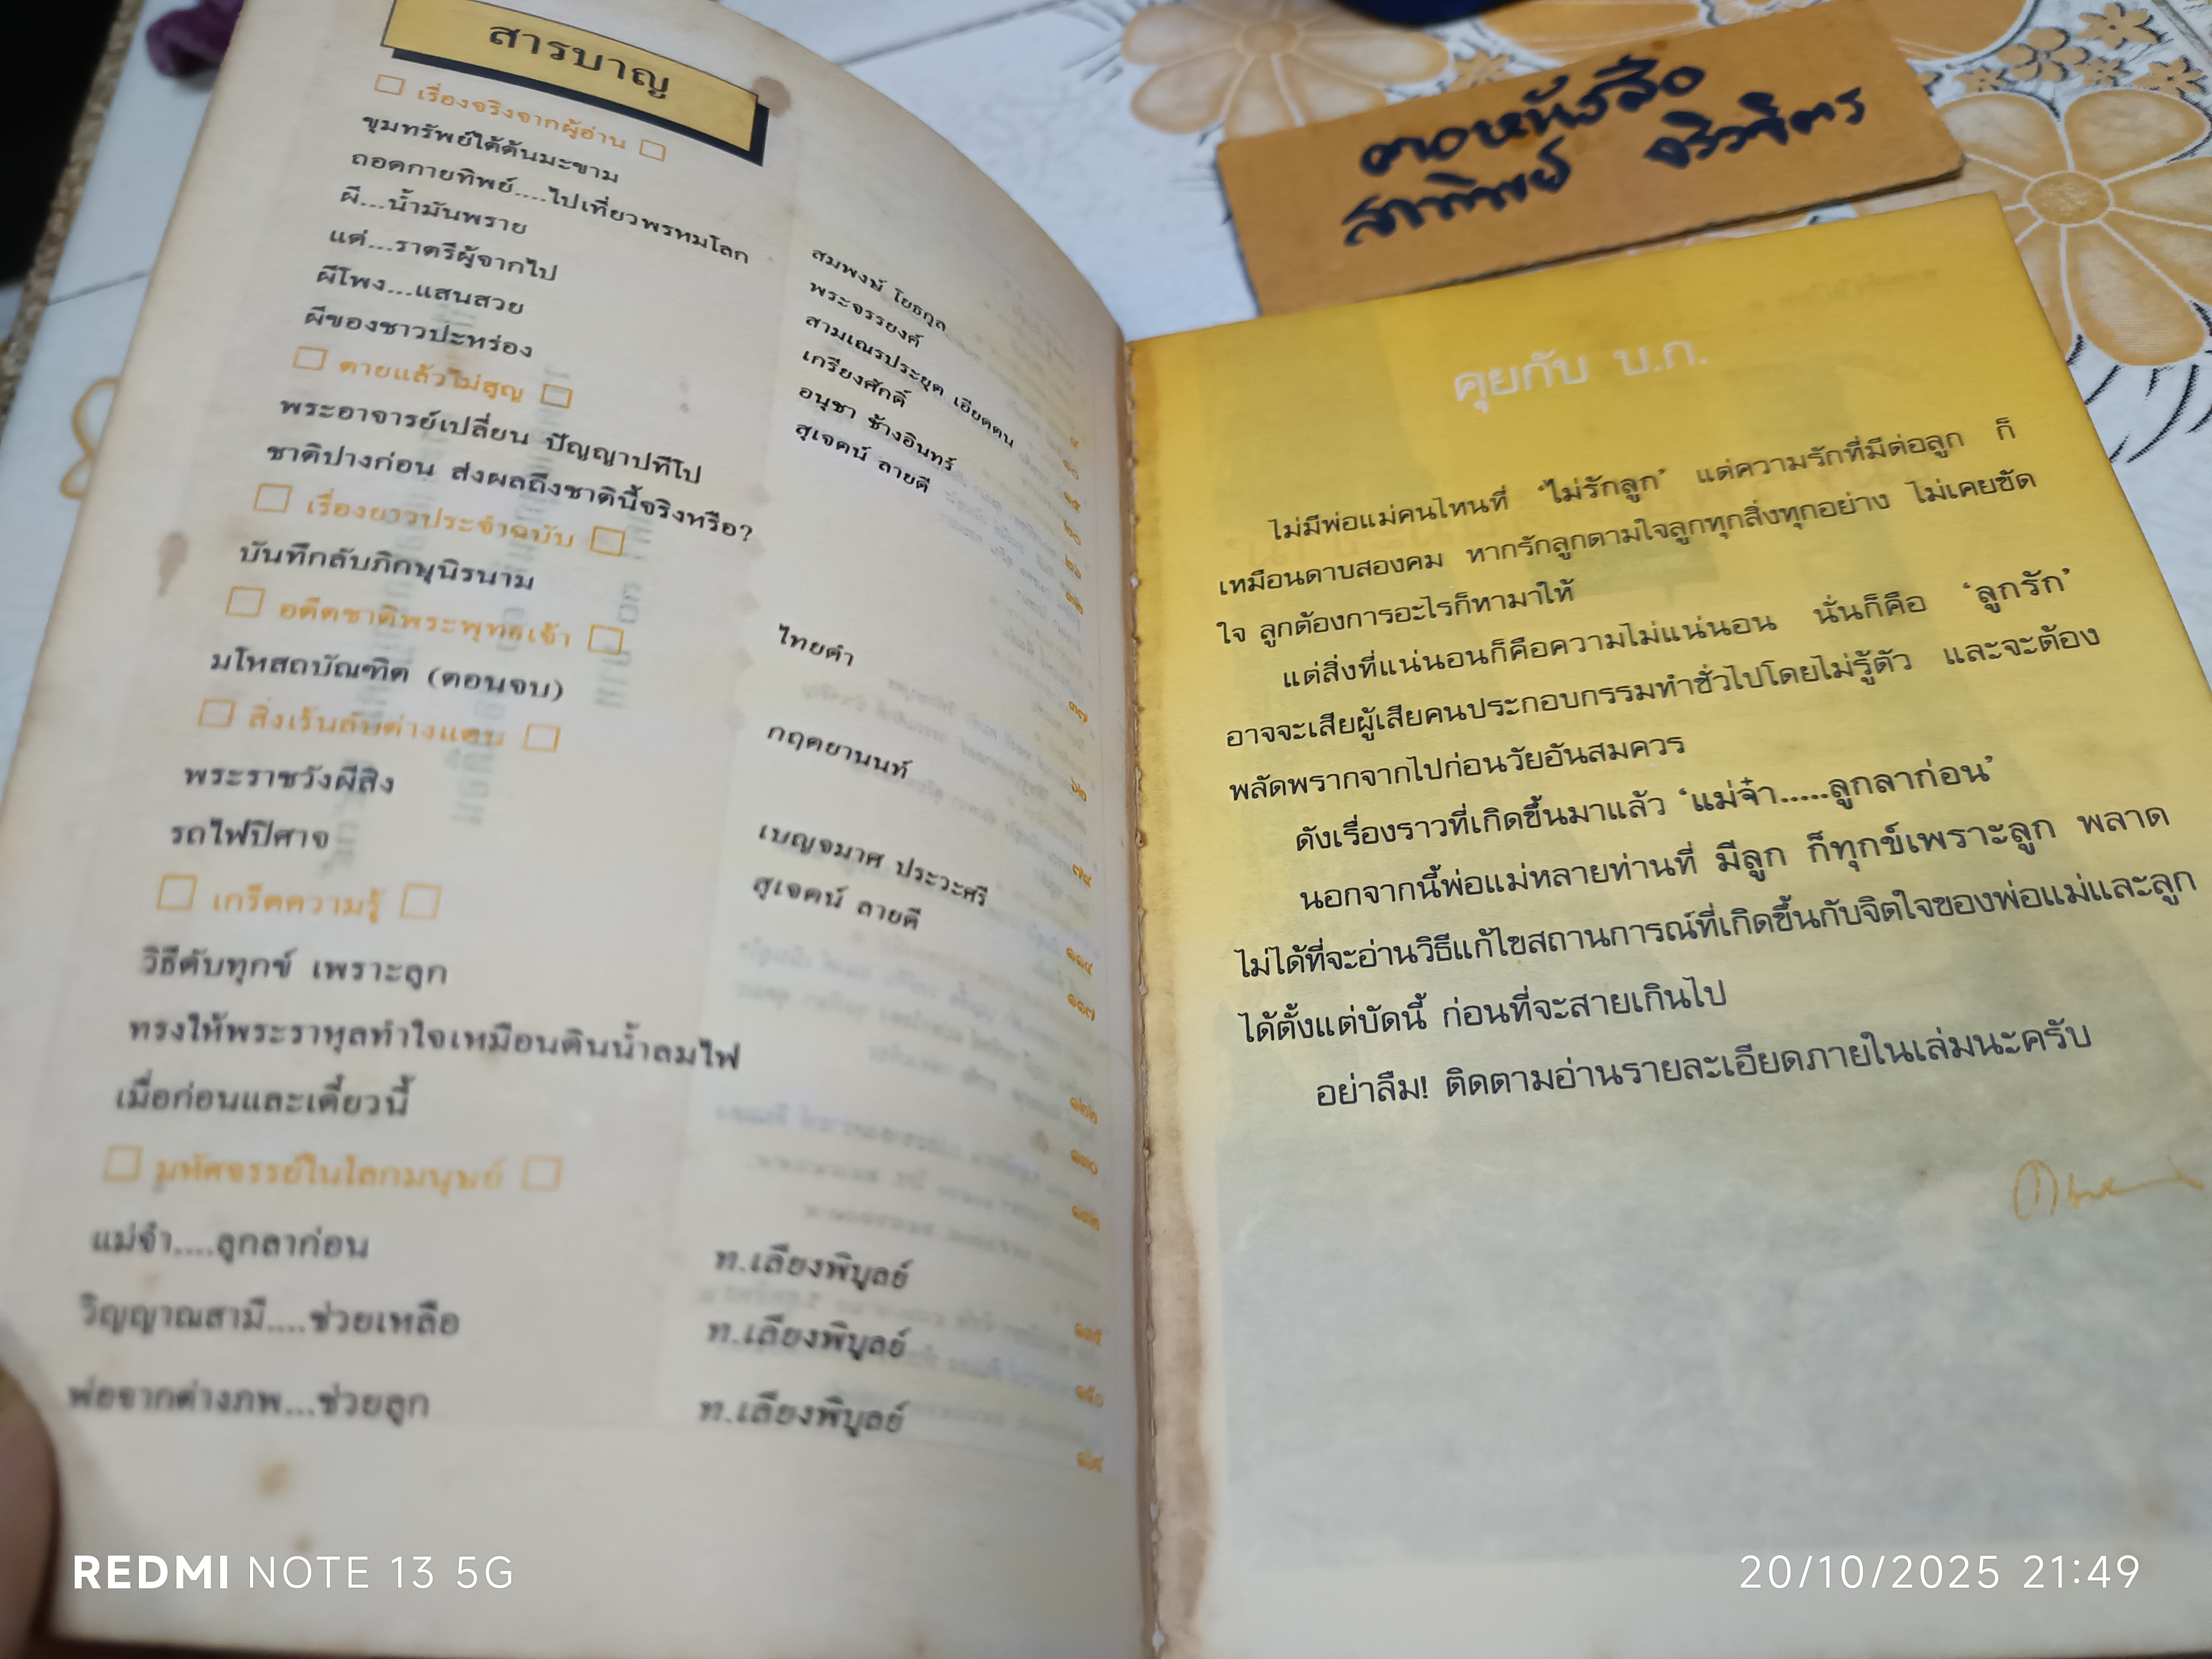 สารบาญ
เรื่องจริงจากผู้อ่าน
ขุมทรัพย์ใต้ต้นมะขาม
ถอดกายทิพย์....ไปเที่ยวพรหมโลก
ผี...น้ำมันพราย
แด่...ราตรีผู้จากไป
ผีโพง...แสนสวย
ผีของชาวปะหร่อง
ตายแล้วไม่สูญ
พระอาจารย์เปลี่ยน ปัญญาปทีโป
ชาติปางก่อน ส่งผลถึงชาตินี้จริงหรือ?
เรื่องยาวประจำฉบับ
บันทึกลับภิกษุนิรนาม
อดีตชาติพระพุทธเจ้า
มโหสถบัณฑิต (ตอนจบ)
สิ่งเร้นลับต่างแดน
พระราชวังผีสิง
รถไฟปิศาจ
เกร็ดความรู้
วิธีดับทุกข์ เพราะลูก
ทรงให้พระราหุลทำใจเหมือนดินน้ำลมไฟ
เมื่อก่อนและเดี๋ยวนี้
มหัศจรรย์ในโลกมนุษย์
แม่จ๋า....ลูกลาก่อน
วิญญาณสามี....ช่วยเหลือ
พ่อจากต่างภพ...ช่วยลูก
สมพงษ์ โยธกุล
พระจรรยงค์
สามเณรประยุต เอียดตน
เกรียงศักดิ์
อนุชา ช้างอินทร์
สุเจตน์ ลายดี
ไทยดำ
กฤตยานนท์
เบญจมาศ ประวะศรี
สุเจตน์ ลายดี
ท.เลียงพิบูลย์
ท.เลียงพิบูลย์
ท.เลียงพิบูลย์
๓๗
๖๒
๗๔
๑๑๔
๑๑๗
๑๒๒
๑๓๐
๑๓๒
๑๓๕
๑๕๐
ตอหนังสือ
สาทิพย์ จริวจิตร
คุยกับ บ.ก.
ไม่มีพ่อแม่คนไหนที่ 'ไม่รักลูก' แต่ความรักที่มีต่อลูก ก็
เหมือนดาบสองคม หากรักลูกตามใจลูกทุกสิ่งทุกอย่าง ไม่เคยขัด
ใจ ลูกต้องการอะไรก็หามาให้
แต่สิ่งที่แน่นอนก็คือความไม่แน่นอน นั่นก็คือ 'ลูกรัก'
อาจจะเสียผู้เสียคนประกอบกรรมทำชั่วไปโดยไม่รู้ตัว และจะต้อง
พลัดพรากจากไปก่อนวัยอันสมควร
ดังเรื่องราวที่เกิดขึ้นมาแล้ว 'แม่จ๋า.....ลูกลาก่อน'
นอกจากนี้พ่อแม่หลายท่านที่ มีลูก ก็ทุกข์เพราะลูก พลาด
ไม่ได้ที่จะอ่านวิธีแก้ไขสถานการณ์ที่เกิดขึ้นกับจิตใจของพ่อแม่และลูก
ได้ตั้งแต่บัดนี้ ก่อนที่จะสายเกินไป
อย่าลืม! ติดตามอ่านรายละเอียดภายในเล่มนะครับ
REDMI NOTE 13 5G
20/10/2025 21:49